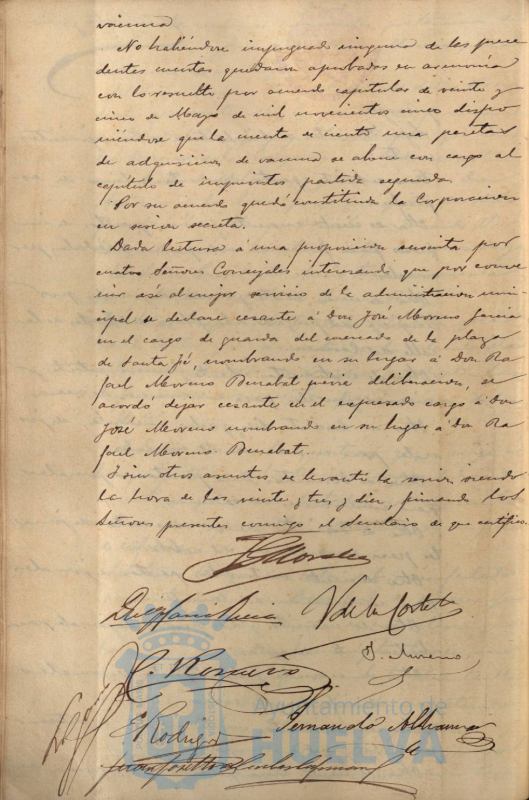 vacuna
No habiéndose impugnado ninguna de las prece
dentes cuentas quedaron aprobadas en armonía
con lo resuelto por acuerdo capitular de veinte y
cinco de Mayo de mil novecientos cinco dispo
niéndose que la cuenta de ciento una pesetas
de adquisición de vacuna se abone con cargo al
capítulo de imprevistos partida segunda.
Por su acuerdo quedó constituida la Corporación
en sesión secreta.
Dada lectura á una proposición suscrita por
cuatro Señores Concejales interesando que por conve
nir así al mejor servicio de la administración mu
cipal se declare cesante á Don José Moreno García
en el cargo de guarda del mercado de la plaza
de Santa Fé, nombrando en su lugar á Don Ra
fael Moreno Benabat prévia deliberación, se
acordó dejar cesante en el expresado cargo á Don
José Moreno nombrando en su lugar á don Ra
fael Moreno Benabat.
Y sin otros asuntos se levanta la sesión siendo
la hora de las veinte y tres y diez, firmando los
Señores presentes conmigo el Secretario de que certifico.
V de la Corte
J. Moreno
C. Romero
E Rodrigo
Fernando
Ayuntamiento de
HUELVA